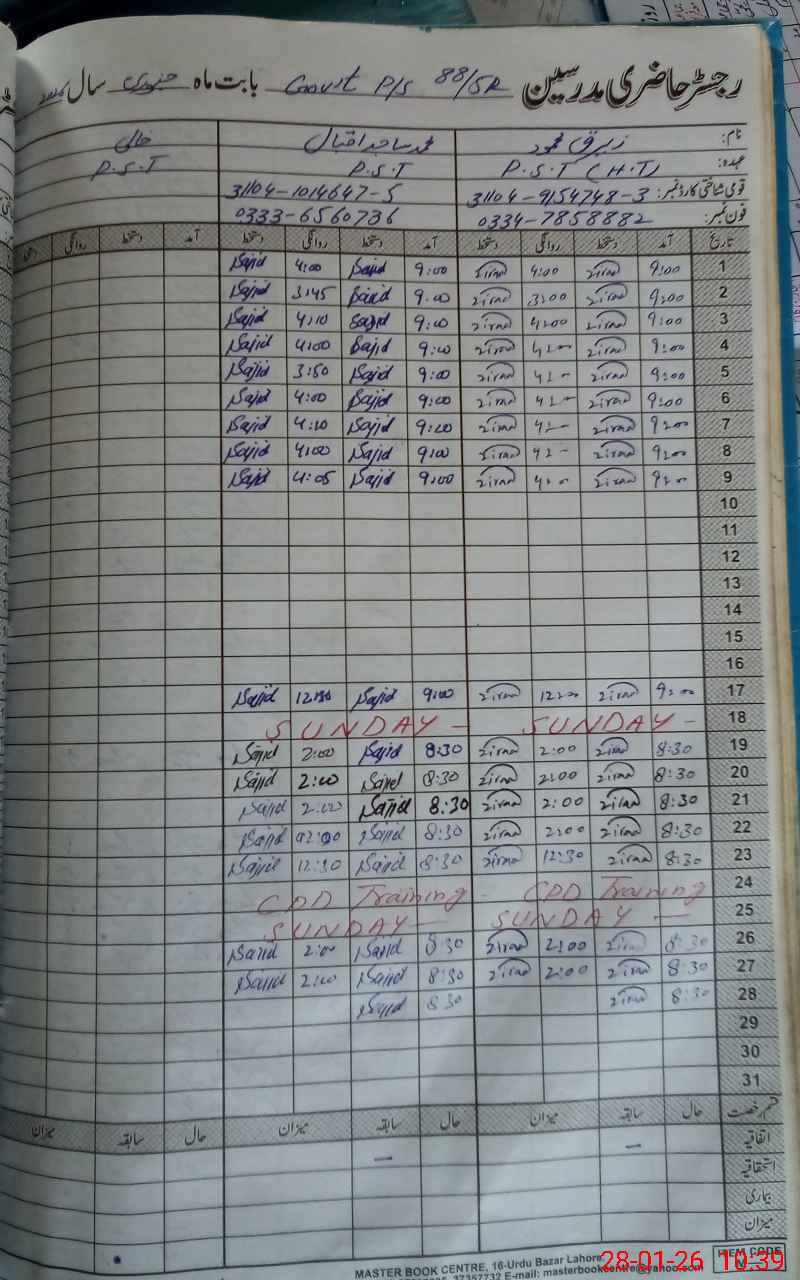 رجسٹر حاضری مدرسین Govt P/S 88/5R بابت ماہ جنوری سال
نام: زبرق محمود محمد ساجد اقبال خالی
عہدہ: P.S.T (H.T) P.S.T P.S.T
قومی شناختی کارڈ نمبر: 31104-9154748-3 31104-1014647-5
فون نمبر: 0334-7858882 0333-6560736
تاریخ آمد دستخط روانگی دستخط آمد دستخط روانگی دستخط آمد دستخط روانگی دستخط
1 9:00 4:00 9:00 Sajid 4:00 Sajid
2 9:00 3:00 9:00 Sajid 3:45 Sajid
3 9:00 4:00 9:00 Sajid 4:10 Sajid
4 9:00 4:00 9:00 Sajid 4:00 Sajid
5 9:00 4:00 9:00 Sajid 3:50 Sajid
6 9:00 4:00 9:00 Sajid 4:00 Sajid
7 9:00 4:00 9:00 Sajid 4:10 Sajid
8 9:00 4:00 9:00 Sajid 4:00 Sajid
9 9:00 4:00 9:00 Sajid 4:05 Sajid
10
11
12
13
14
15
16
17 9:00 12:00 9:00 Sajid 12:30 Sajid
18 SUNDAY - SUNDAY -
19 8:30 2:00 8:30 Sajid 2:00 Sajid
20 8:30 2:00 8:30 Sajid 2:00 Sajid
21 8:30 2:00 8:30 Sajid 2:00 Sajid
22 8:30 2:00 8:30 Sajid 02:00 Sajid
23 8:30 12:30 8:30 Sajid 12:30 Sajid
24 CPD Training - CPD Training
25 SUNDAY - SUNDAY -
26 8:30 2:00 8:30 Sajid 2:00 Sajid
27 8:30 2:00 8:30 Sajid 2:00 Sajid
28 8:30 8:30 Sajid
29
30
31
قسم رخصت حال سابقہ میزان حال سابقہ میزان حال سابقہ میزان
اتفاقیہ - -
استحقاقیہ
بیماری
میزان
MASTER BOOK CENTRE, 16-Urdu Bazar Lahore
37357732 E-mail: masterbookcentre@yahoo.com
HIEM CODE
28-01-26 10:39